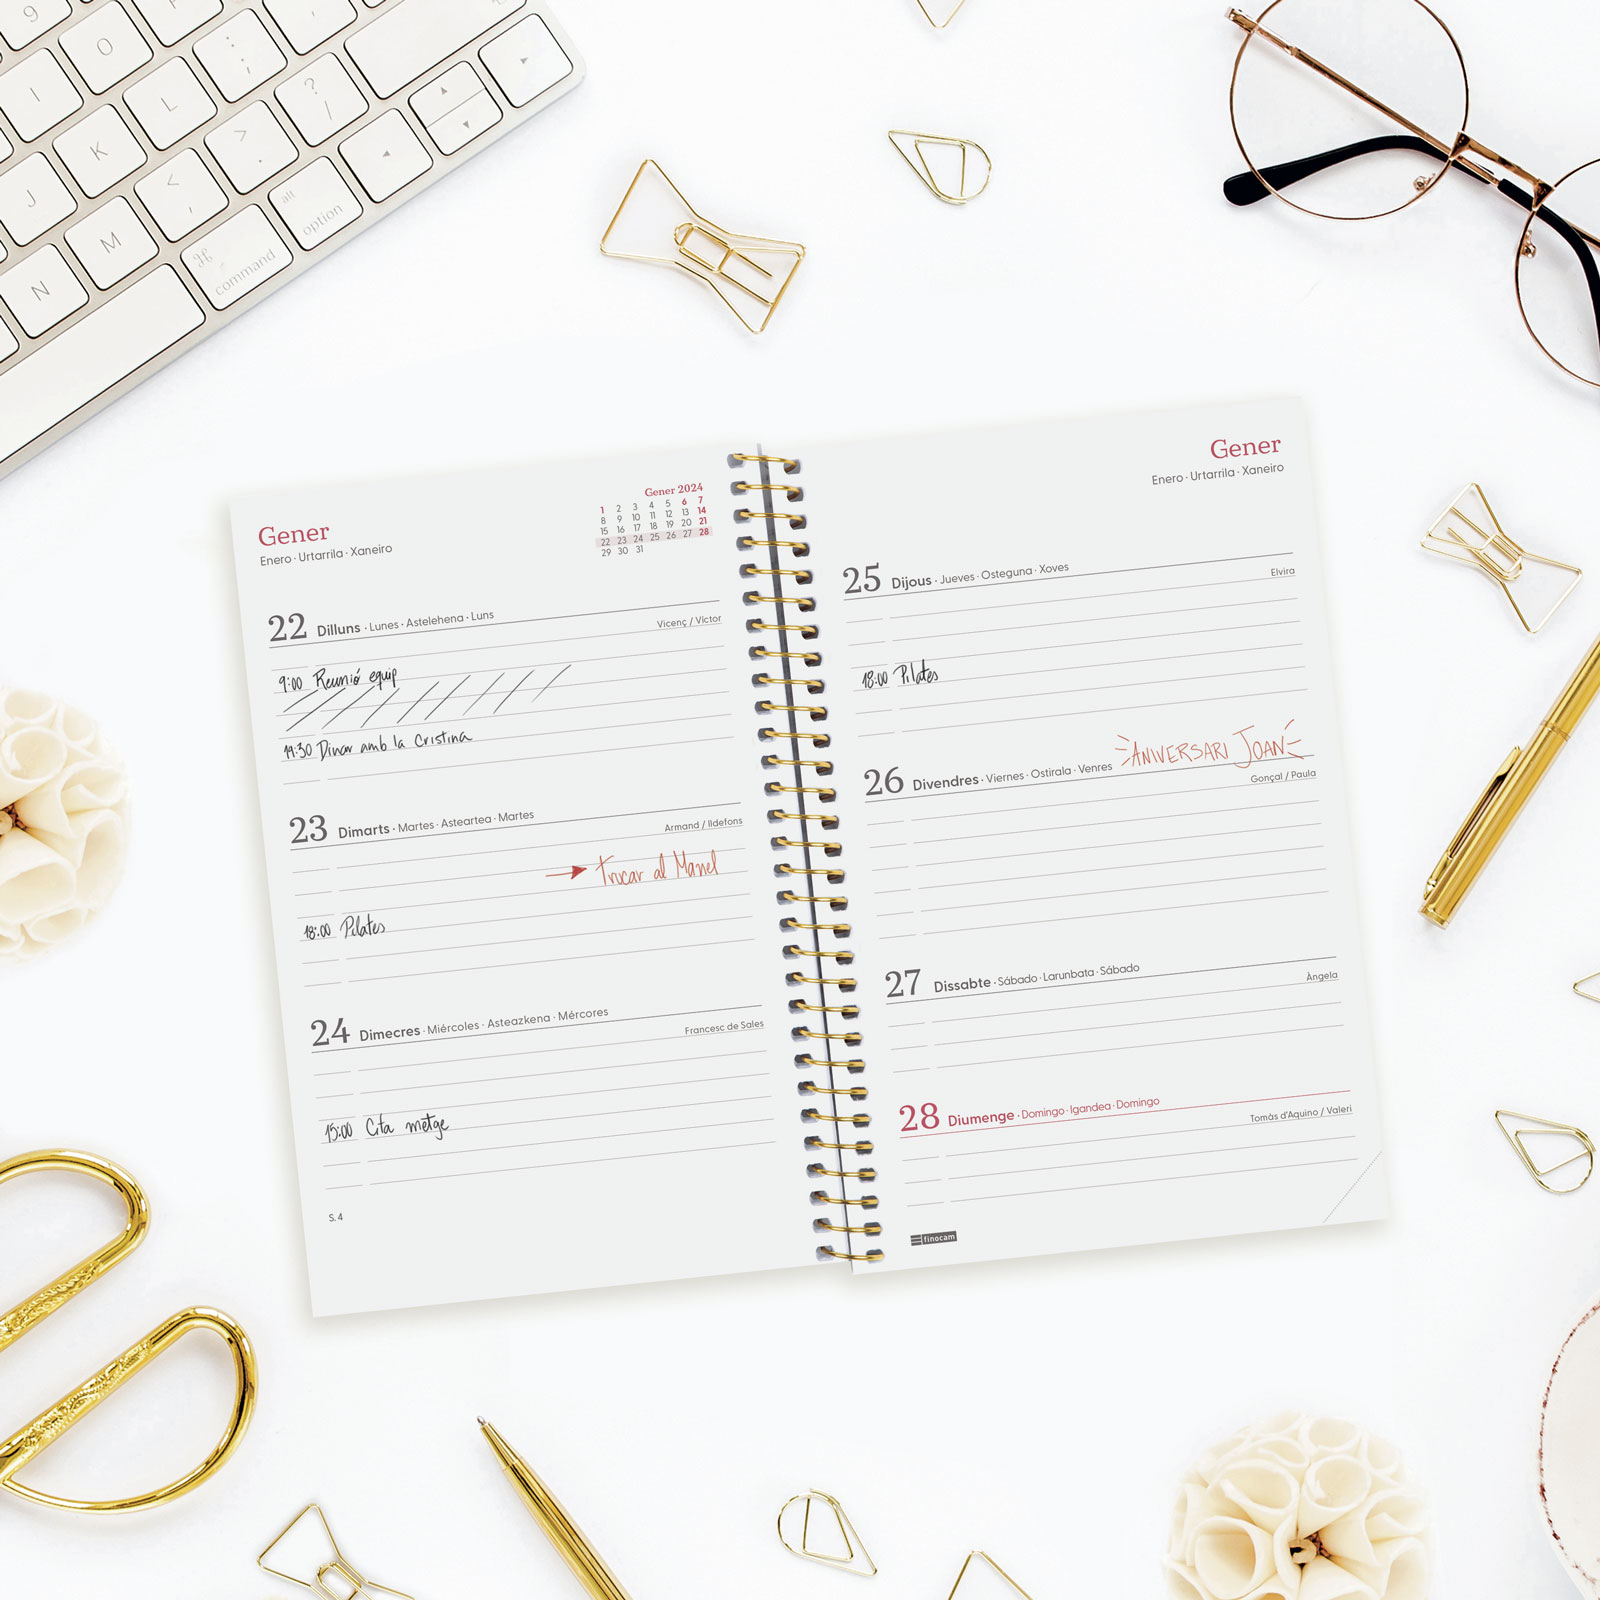 9
O
I
L
: ;
? /
K
> .
J
< ,
M
alt
option
N
⌘
command
Gener
Enero · Urtarrila · Xaneiro
Gener 2024
1 2 3 4 5 6 7
8 9 10 11 12 13 14
15 16 17 18 19 20 21
22 23 24 25 26 27 28
29 30 31
22 Dilluns · Lunes · Astelehena · Luns
Vicenç / Víctor
9:00 Reunió equip
14:30 Dinar amb la Cristina
23 Dimarts · Martes · Asteartea · Martes
Armand / Ildefons
Trucar al Manel
18:00 Pilates
24 Dimecres · Miércoles · Asteazkena · Mércores
Francesc de Sales
15:00 Cita metge
S. 4
Gener
Enero · Urtarrila · Xaneiro
25 Dijous · Jueves · Osteguna · Xoves
Elvira
18:00 Pilates
ANIVERSARI JOAN
26 Divendres · Viernes · Ostirala · Venres
Gonçal / Paula
27 Dissabte · Sábado · Larunbata · Sábado
Àngela
28 Diumenge · Domingo · Igandea · Domingo
Tomàs d'Aquino / Valeri
finocam